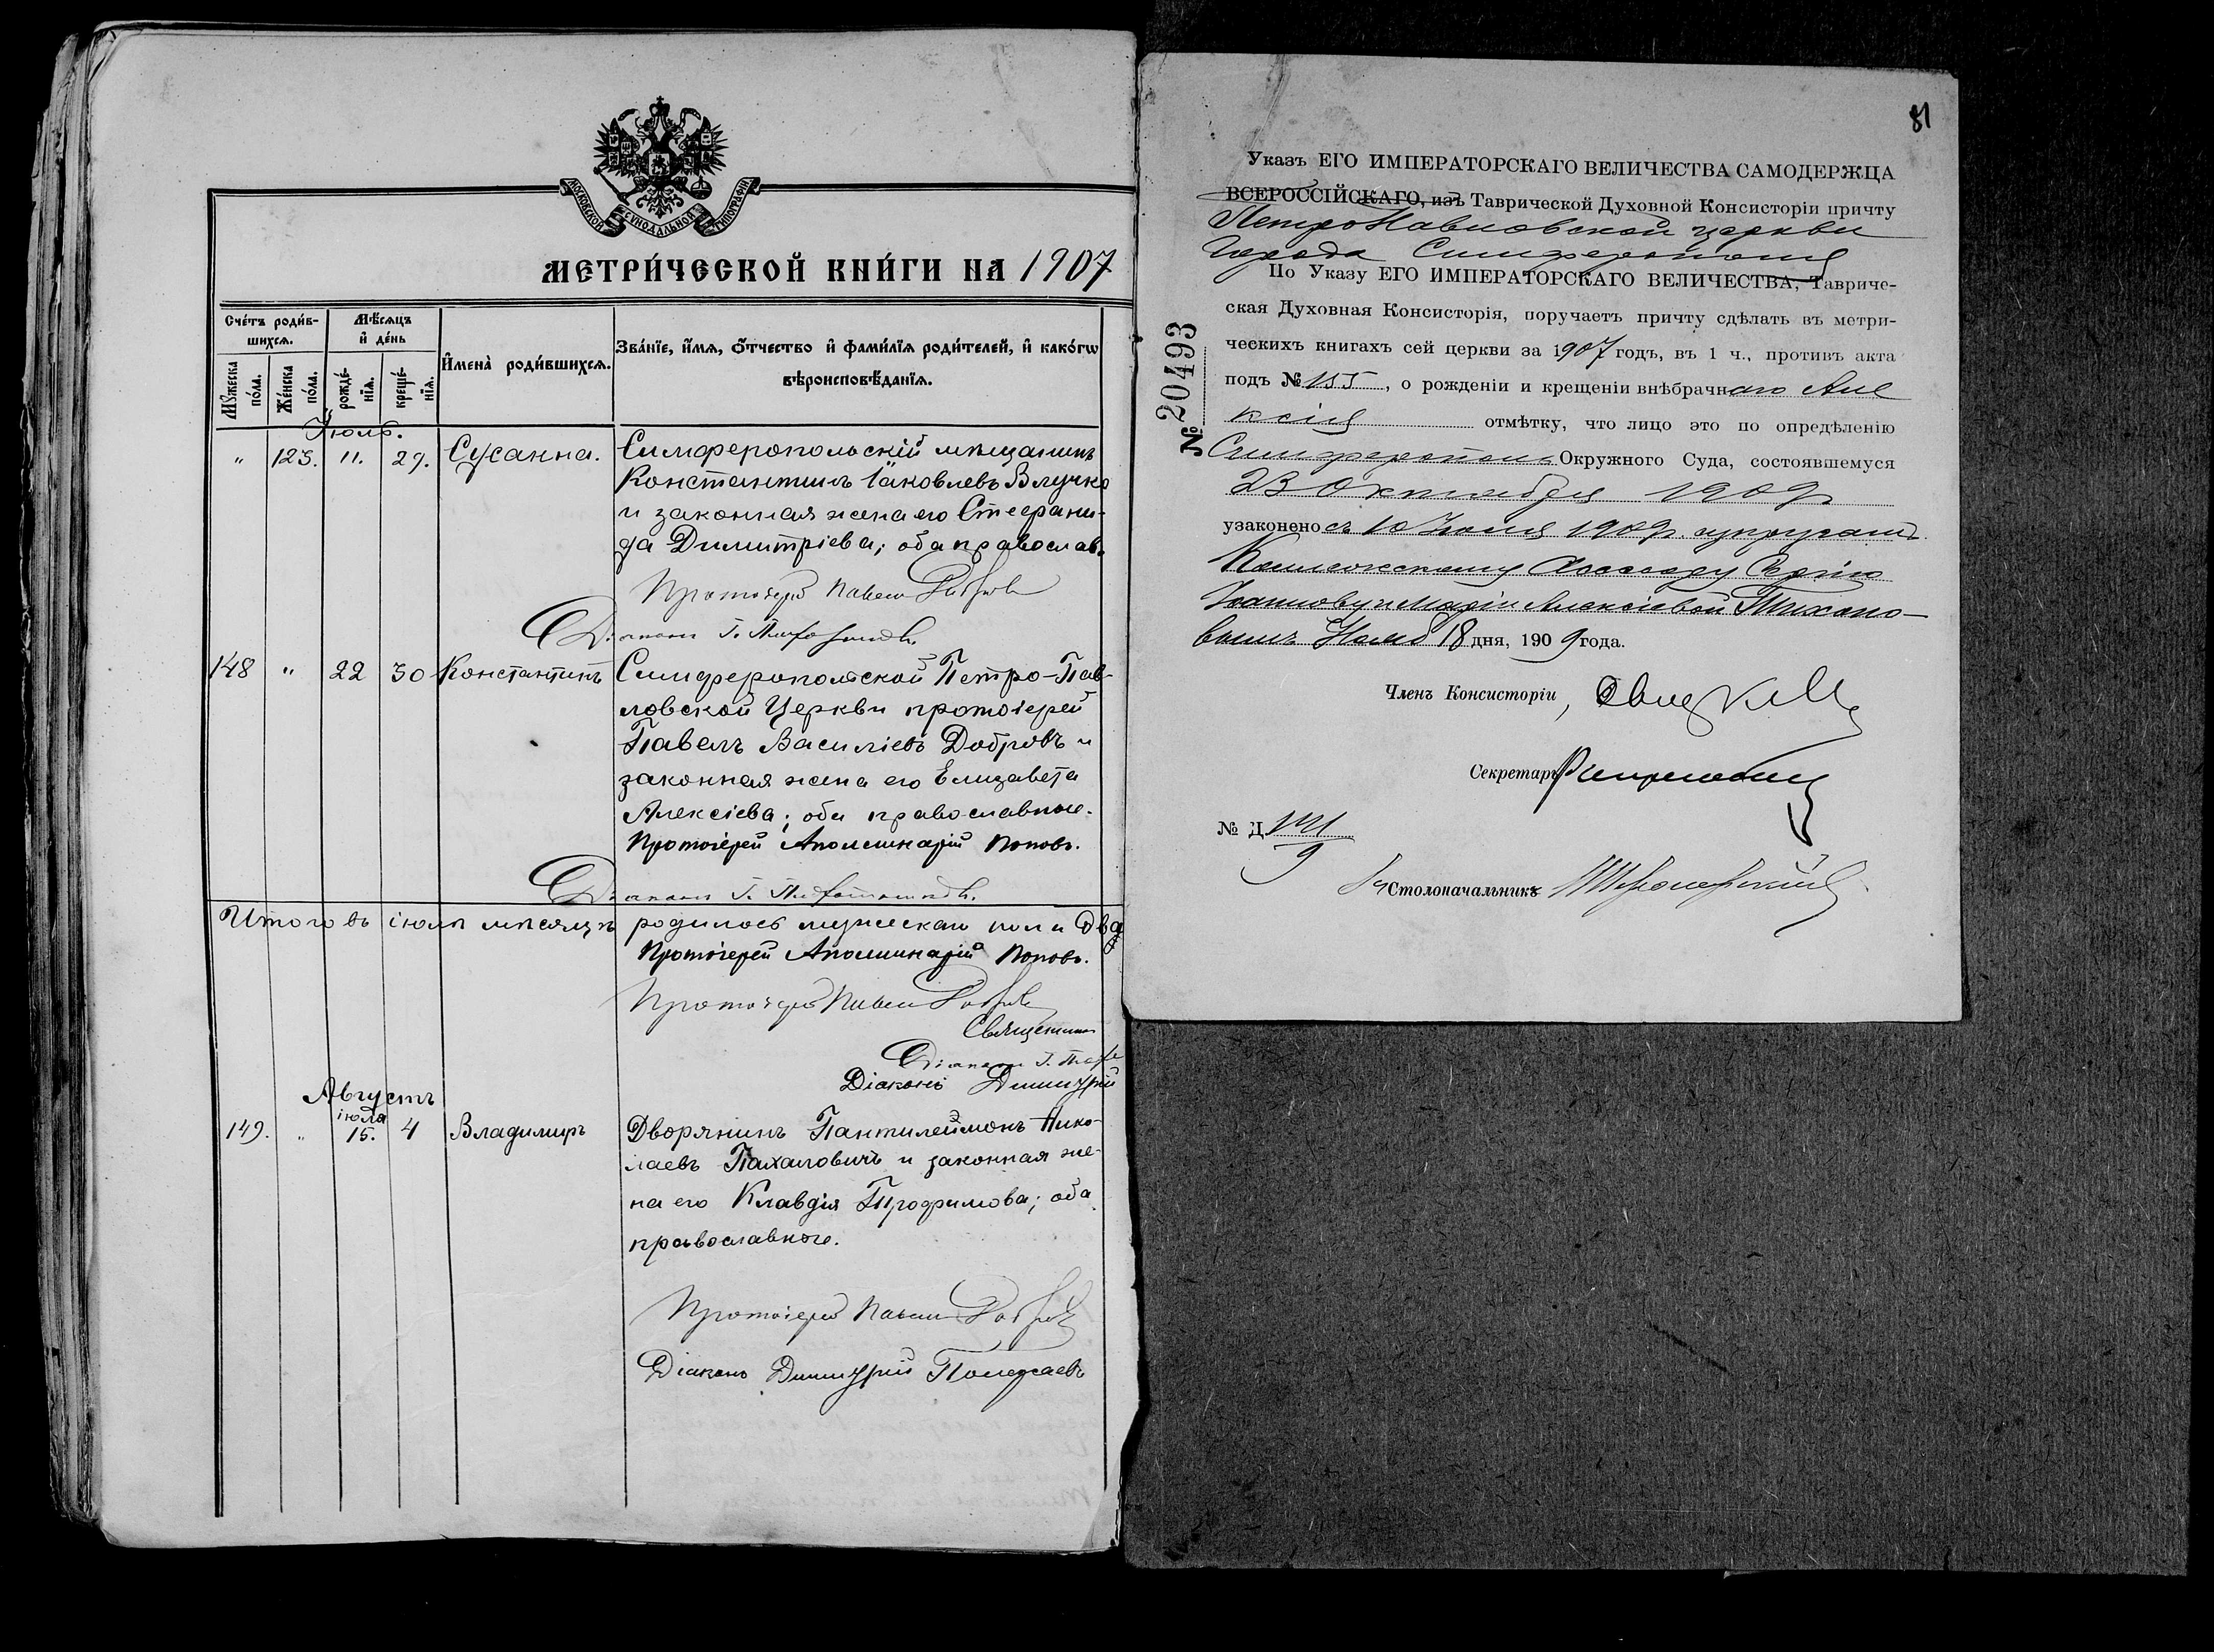 МОСКОВСКОЙ СѴНОДАЛЬНОЙ ТИПОГРАФІИ
МЕТРИ́ЧЕСКОЙ КНИ́ГИ НА 1907
Сче́тъ роди́в-
шихсѧ.
Мѣ́сяцъ
и҆ де́нь
Мꙋ́жеска
по́ла.
Же́нска
по́ла.
рожде́-
нїѧ.
креще́-
нїѧ.
И҆мена̀ роди́вшихсѧ.
Зва́нїе, и҆́мѧ, ѻ҆́тчество и҆ фами́лїѧ роди́телей, и҆ како́гѡ
вѣроисповѣ́данїѧ.
Іюль.
„ 123. 11. 29. Сусанна. Симферопольскій мѣщанинъ
Константинъ Іаковлевъ
и законная жена его Стефани-
да Димитріева; оба православ.
Протоіерей Павелъ Добровъ
Діаконъ Г.
148 „ 22 30 Константинъ Симферопольской Петро-Пав-
ловской Церкви протоіерей
Павелъ Василіевъ Добровъ и
законная жена его Елизавета
Алексіева; оба православные.
Протоіерей Аполлинарій Поповъ.
Діаконъ Г.
Итого въ іюлѣ мѣсяцѣ родилось мужескаго пола два
Протоіерей Аполлинарій Поповъ.
Протоіерей Павелъ Добровъ
Священникъ
Діаконъ Г.
Діаконъ Димитрій
Августъ
іюля
149. „ 15. 4 Владимиръ Дворянинъ Пантилеймонъ Нико-
лаевъ Пахаловичъ и законная же-
на его Клавдія Трофимова; оба
православные.
Протоіерей Павелъ Добровъ
Діаконъ Димитрій Полежаевъ
81
Указъ ЕГО ИМПЕРАТОРСКАГО ВЕЛИЧЕСТВА САМОДЕРЖЦА
ВСЕРОССІЙСКАГО, изъ Таврической Духовной Консисторіи причту
Петропавловской церкви
города Симферополя
По Указу ЕГО ИМПЕРАТОРСКАГО ВЕЛИЧЕСТВА, Тавриче-
ская Духовная Консисторія, поручаетъ причту сдѣлать въ метри-
ческихъ книгахъ сей церкви за 1907 годъ, въ 1 ч., противъ акта
подъ № 155, о рожденіи и крещеніи внѣбрачнаго Але
ксія отмѣтку, что лицо это по опредѣленію
Симфероп. Окружного Суда, состоявшемуся
23 Октября 1909 г.
узаконено съ 10 Іюня 1909 г. супругамъ
Коллежскому Ассесору
Іоаннову и Маріи Алексіевой Тихоно-
вымъ Нояб 18 дня, 1909 года.
№ 20493
Членъ Консисторіи,
Секретарь
№ Д
9
Столоначальникъ